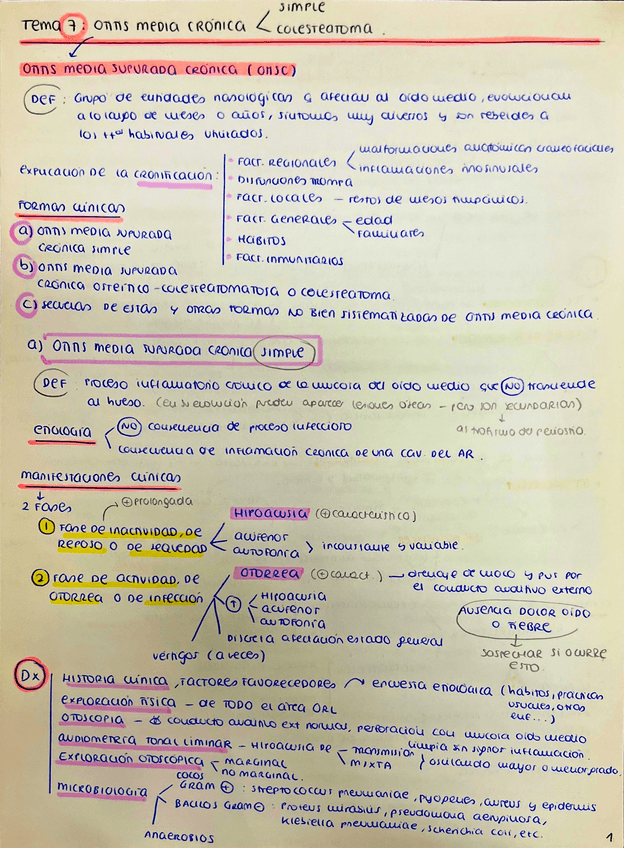 SIMPLE
Tema 7: OTITIS MEDIA CRÓNICA
COLESTEATOMA.
OTITIS MEDIA SUPURADA CRÓNICA (OMSC)
DEF: Grupo de entidades nosológicas q afectan al oído medio, evolucionan
a lo largo de meses o años, síntomas muy diversos y son rebeldes a
los tto habituales utilizados.
EXPLICACIÓN DE LA CRONIFICACIÓN:
• FACT. REGIONALES
malformaciones anatómicas craneofaciales
inflamaciones rinosinusales
• DISFUNCIONES TROMPA
• FACT. LOCALES – restos de mesos timpánicos.
• FACT. GENERALES
edad
familiares
• HÁBITOS
• FACT. INMUNITARIOS
FORMAS CLÍNICAS
a) OTITIS MEDIA SUPURADA
CRÓNICA SIMPLE
b) OTITIS MEDIA SUPURADA
CRÓNICA OSTEÍTICO-COLESTEATOMATOSA O COLESTEATOMA.
c) SECUELAS DE ESTAS Y OTRAS FORMAS NO BIEN SISTEMATIZADAS DE OTITIS MEDIA CRÓNICA.
a) OTITIS MEDIA SUPURADA CRÓNICA SIMPLE
DEF: Proceso inflamatorio crónico de la mucosa del oído medio que NO trasciende
al hueso. (en su evolución pueden aparecer lesiones óseas – pero son secundarias)
ETIOLOGÍA
NO consecuencia de proceso infeccioso
consecuencia de inflamación crónica de una cav. del AR.
MANIFESTACIONES CLÍNICAS
2 FASES
⊕ prolongada
① FASE DE INACTIVIDAD, DE
REPOSO O DE SEQUEDAD
HIPOACUSIA (⊕ característico)
acúfenos
autofonía
inconstante y variable.
② FASE DE ACTIVIDAD, DE
OTORREA O DE INFECCIÓN
OTORREA (⊕ caract.) → drenaje de moco y pus por
el conducto auditivo externo
↑
Hipoacusia
acúfenos
autofonía
Discreta afectación estado general
vértigos (a veces)
AUSENCIA DOLOR OÍDO
O FIEBRE
SOSPECHAR SI OCURRE
ESTO.
Dx
HISTORIA CLÍNICA, FACTORES FAVORECEDORES → encuesta etiológica (hábitos, prácticas
usuales, otras
enf...)
EXPLORACIÓN FÍSICA – de TODO el área ORL
OTOSCOPIA – conducto auditivo ext normal, perforación con mucosa oído medio
limpia sin signos inflamación.
AUDIOMETRÍA TONAL LIMINAR – HIPOACUSIA DE
transmisión
MIXTA
oscilando mayor o menor grado.
EXPLORACIÓN OTOSCÓPICA
MARGINAL
NO MARGINAL.
MICROBIOLOGÍA
COCOS
GRAM ⊕: streptococcus pneumaniae, pyogenes, aureus y epidermis
BACILOS GRAM ⊖: Proteus mirabilis, pseudomona aeruginosa,
Klebsiella pneumaniae, Escherichia coli, etc.
ANAEROBIOS
1